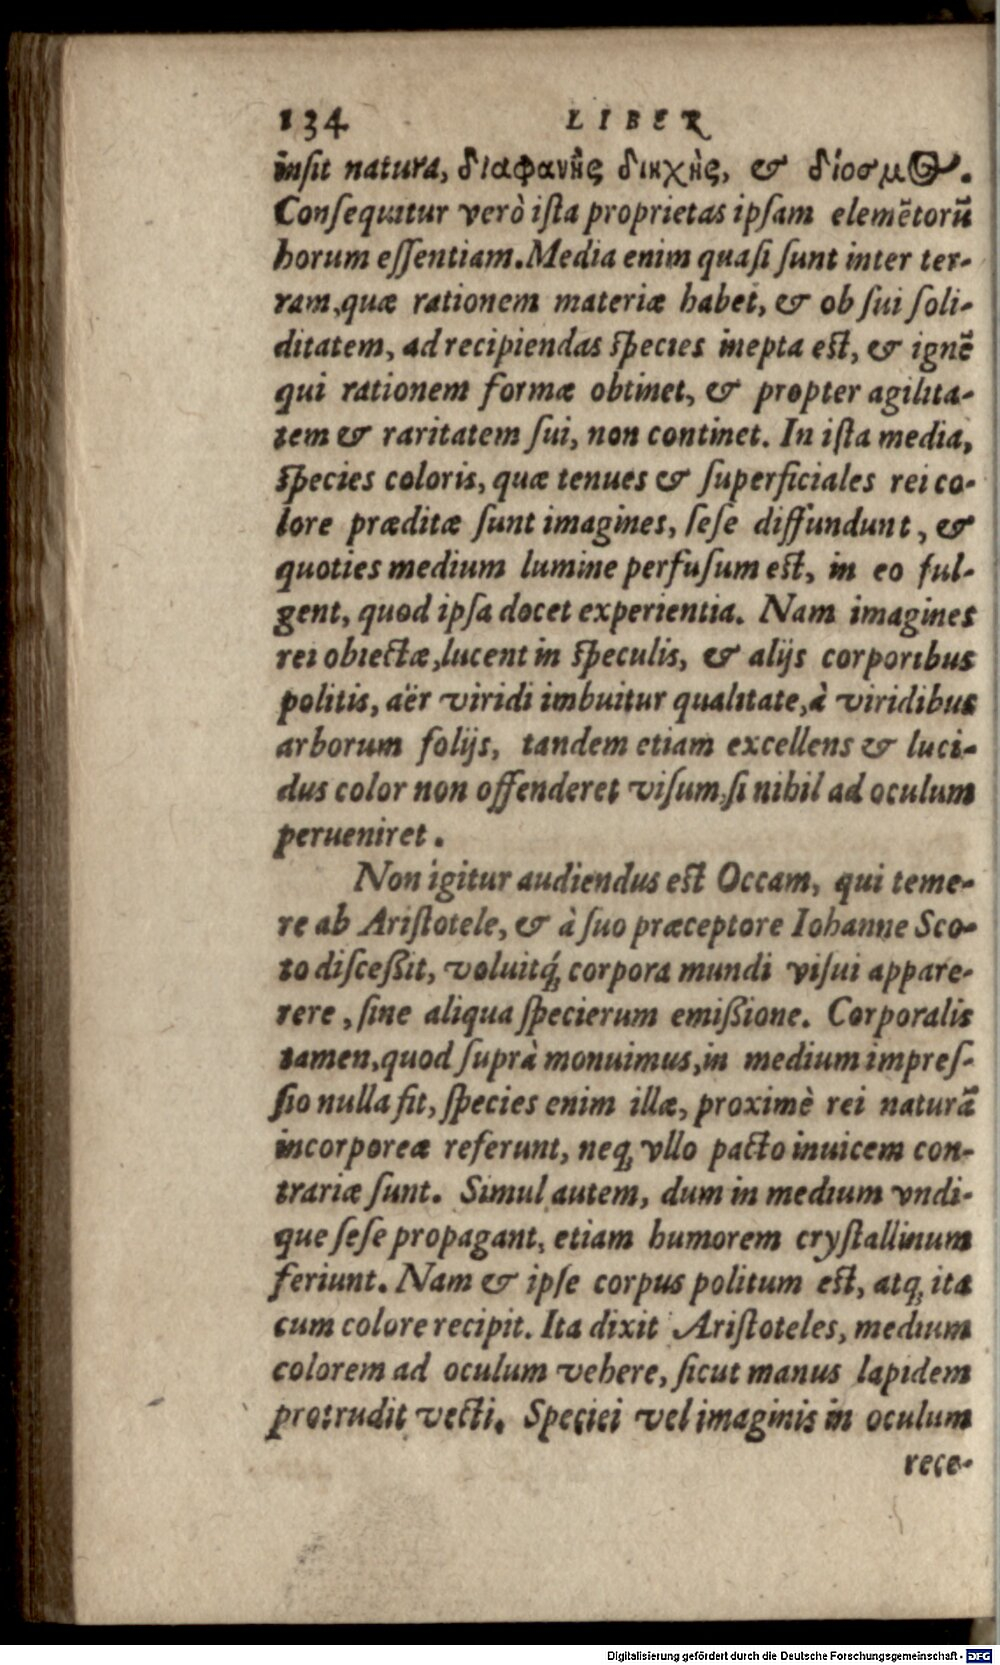 134 LIBER
insit natura, διαφανὴς διηχὴς, & δίοσμος.
Consequitur verò ista proprietas ipsam elemētorū
horum essentiam. Media enim quasi sunt inter ter-
ram, quæ rationem materiæ habet, & ob sui soli-
ditatem, ad recipiendas species inepta est, & ignē
qui rationem formæ obtinet, & propter agilita-
tem & raritatem sui, non continet. In ista media,
species coloris, quæ tenues & superficiales rei co-
lore præditæ sunt imagines, sese diffundunt, &
quoties medium lumine perfusum est, in eo ful-
gent, quod ipsa docet experientia. Nam imagines
rei obiectæ, lucent in speculis, & alijs corporibus
politis, aër viridi imbuitur qualitate, à viridibus
arborum folijs, tandem etiam excellens & luci-
dus color non offenderet visum, si nihil ad oculum
perueniret.
Non igitur audiendus est Occam, qui teme-
re ab Aristotele, & à suo præceptore Iohanne Sco-
to disceßit, voluitq́; corpora mundi visui appare-
rere, sine aliqua specierum emißione. Corporalis
tamen, quod suprà monuimus, in medium impres-
sio nulla fit, species enim illæ, proximè rei naturā
incorporeæ referunt, neq; vllo pacto inuicem con-
trariæ sunt. Simul autem, dum in medium vndi-
que sese propagant, etiam humorem crystallinum
feriunt. Nam & ipse corpus politum est, atq; ita
cum colore recipit. Ita dixit Aristoteles, medium
colorem ad oculum vehere, sicut manus lapidem
protrudit vecti. Speciei vel imaginis in oculum
rece-
Digitalisierung gefördert durch die Deutsche Forschungsgemeinschaft - DFG